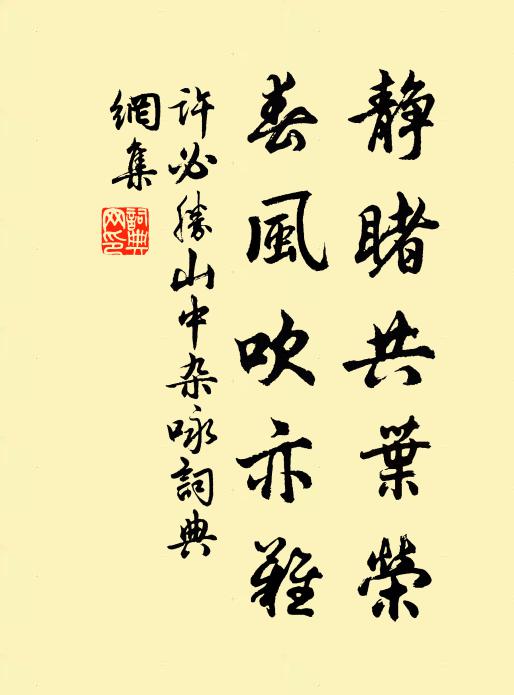 靜睹共葉榮
春風吹亦難
許必勝山中杂咏詞典
網集
詞典網印